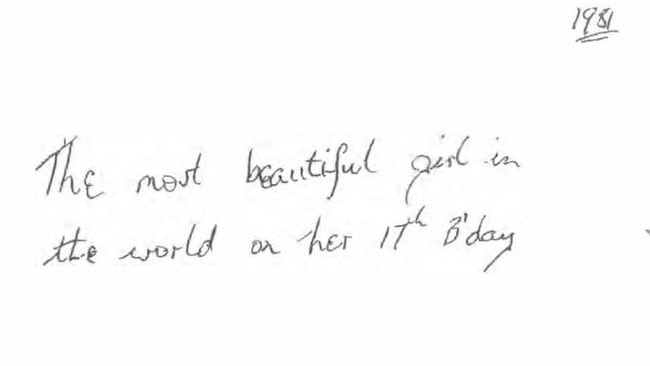 1981
The most beautiful girl in
the world on her 17th B'day